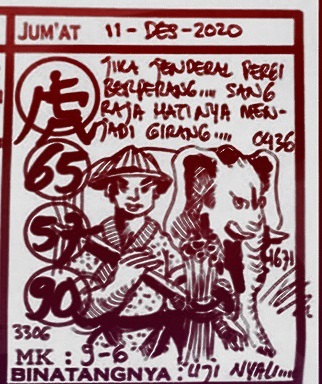 JUM'AT 11-DES-2020
虎
JIKA JENDERAL PERGI
BERPERANG.... SANG
RAJA HATINYA MEN-
JADI GIRANG....
0436
65
57
90
4671
3306
MK : 9-6
BINATANGNYA : UJI NYALI....